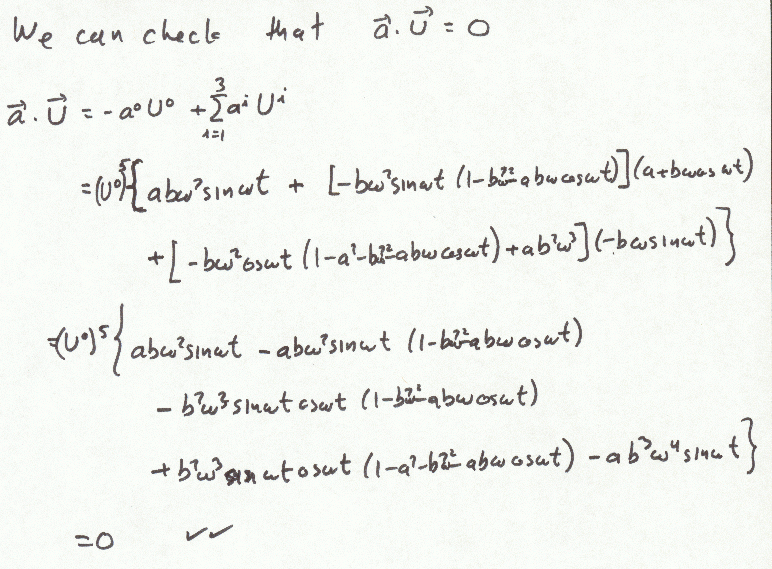 We can check that a⃗.U⃗ = 0
a⃗.U⃗ = -a⁰U⁰ + Σ³ᵢ₌₁ aⁱUⁱ
=(U⁰)⁵{abω²sinωt + [-bω²sinωt (1-b²ω²-abωcosωt)](a+bωcosωt)
+[-bω²cosωt (1-a²-b²ω²-abωcosωt)+ab²ω³](-bωsinωt)}
=(U⁰)⁵{abω²sinωt - abω²sinωt (1-b²ω²-abωcosωt)
- b²ω³sinωtcosωt (1-b²ω²-abωcosωt)
+b²ω³sinωtcosωt (1-a²-b²ω²-abωcosωt) -ab³ω⁴sinωt}
=0 ✓✓